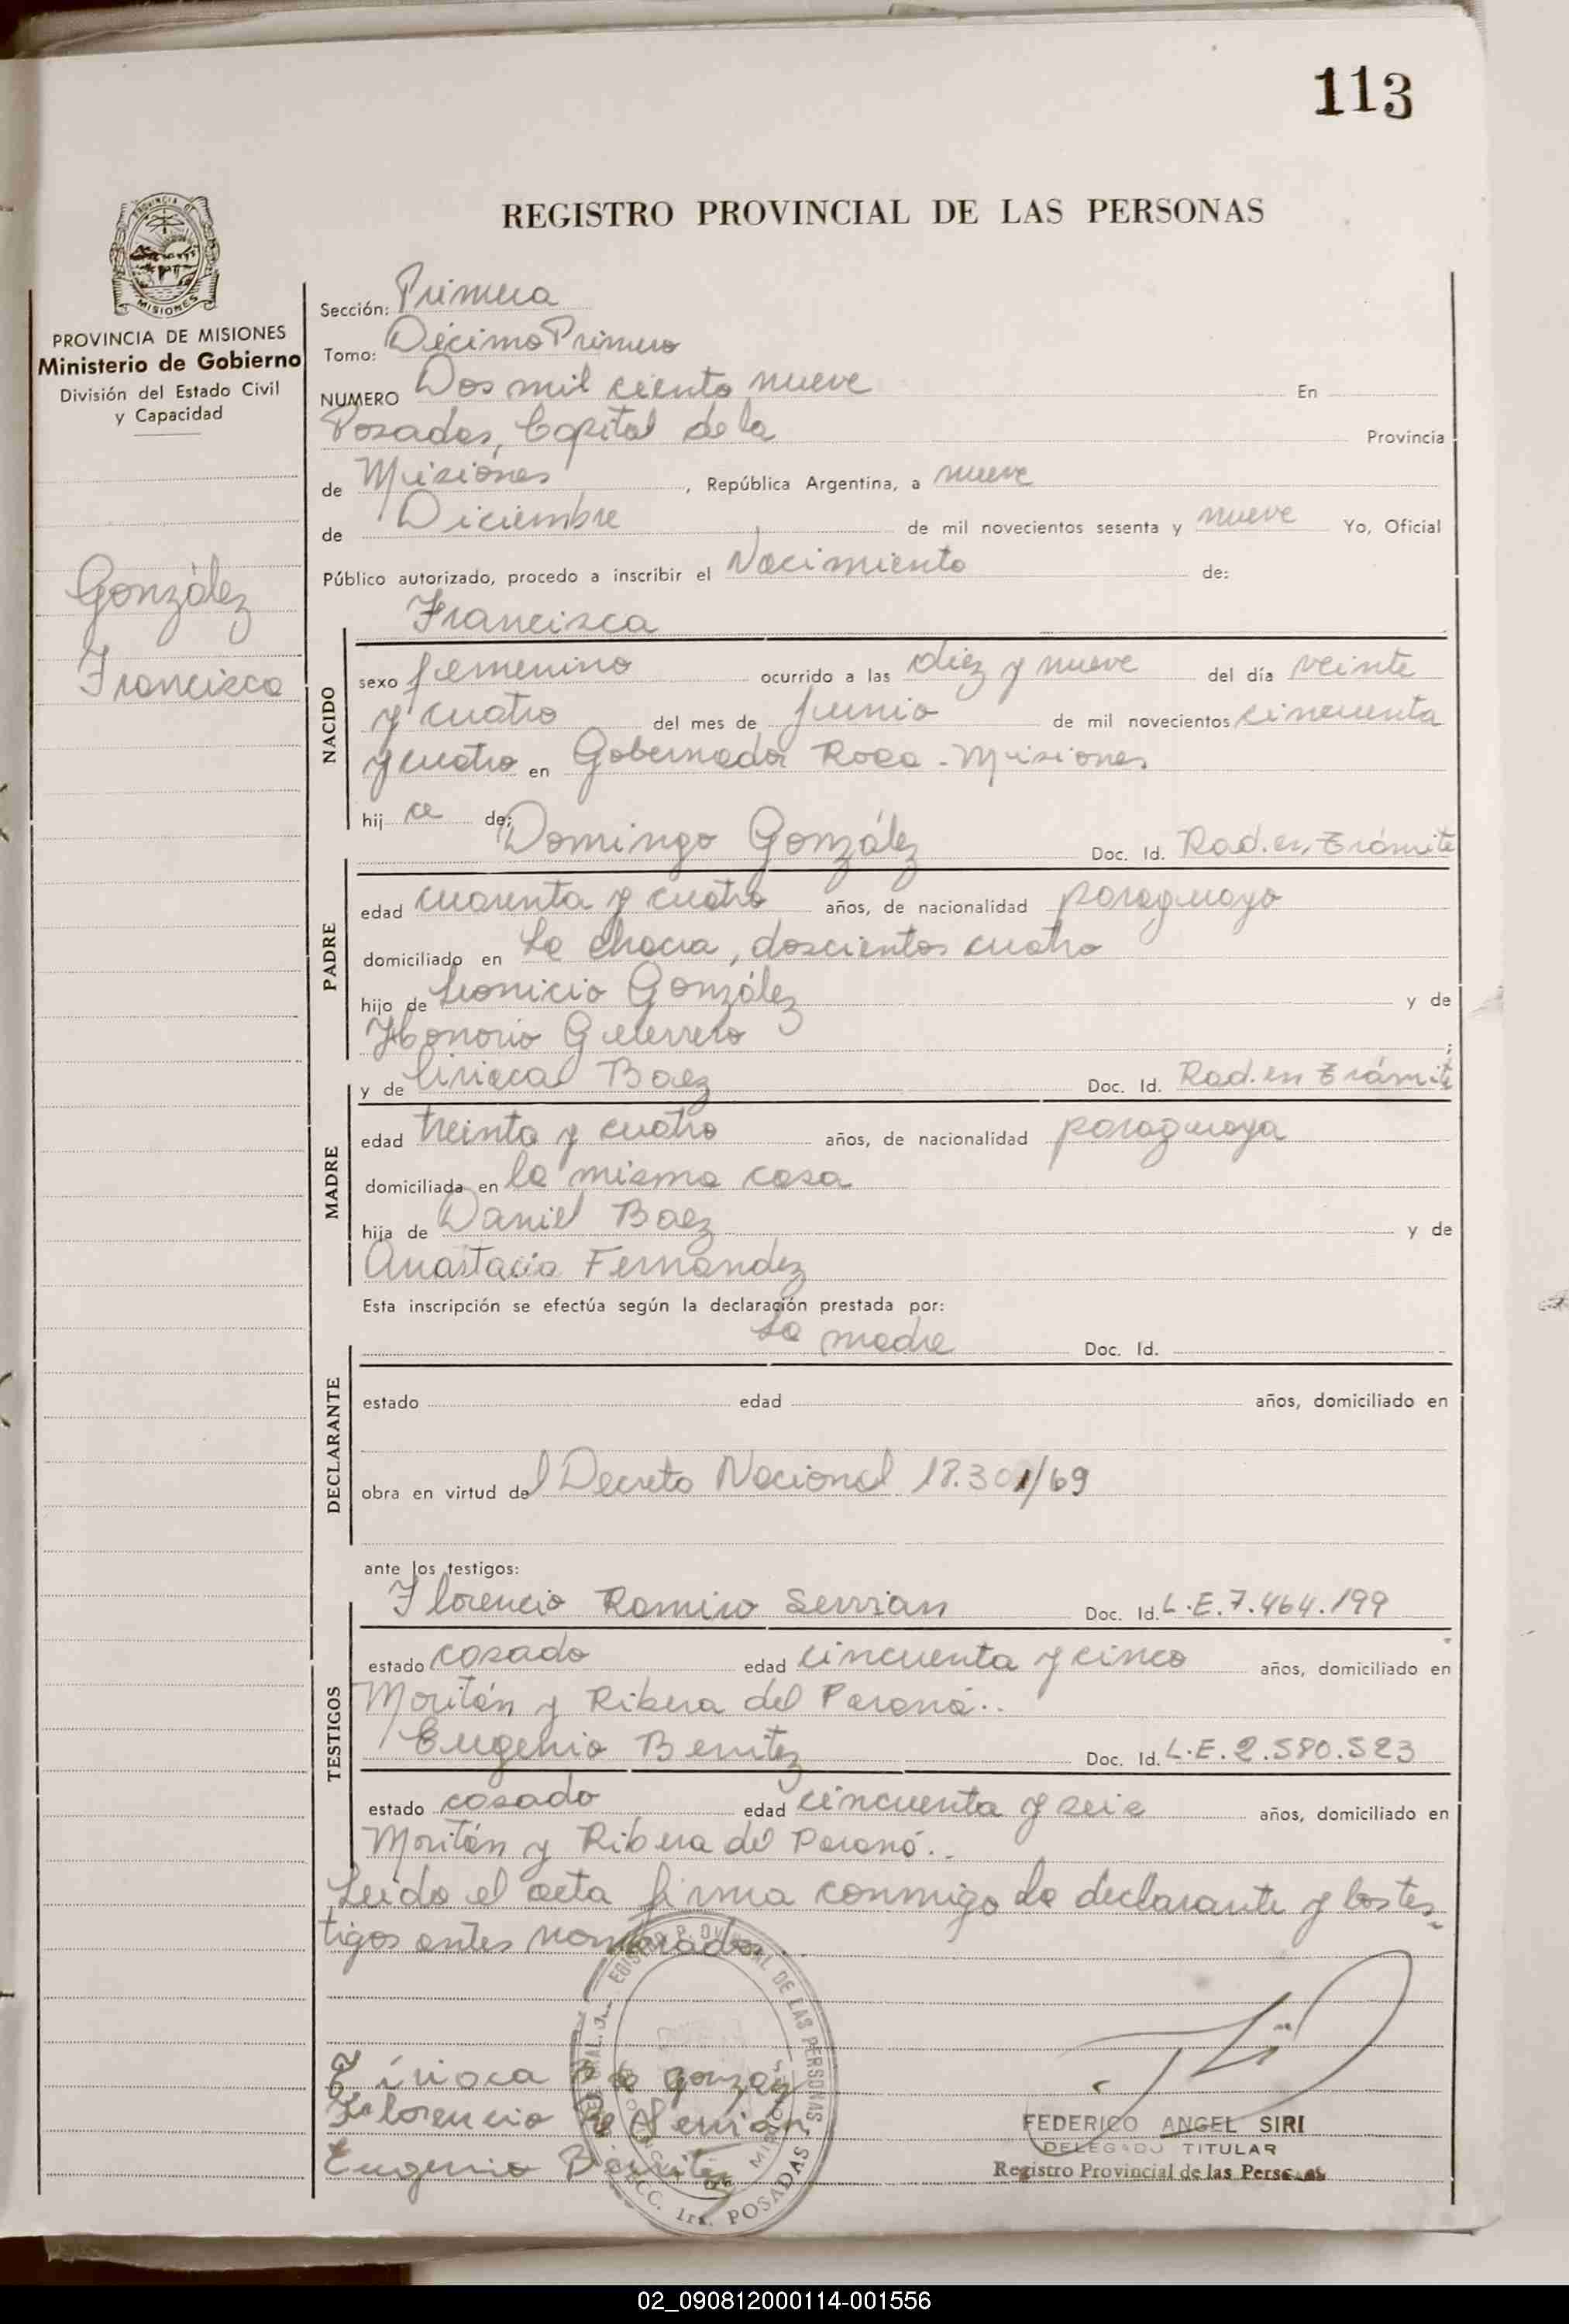 113
REGISTRO PROVINCIAL DE LAS PERSONAS
PROVINCIA DE MISIONES
PROVINCIA DE MISIONES
Ministerio de Gobierno
División del Estado Civil
y Capacidad
González
Francisca
Sección: Primera
Tomo: Décimo Primero
NUMERO Dos mil ciento nueve En
Posadas, Capital de la Provincia
de Misiones, República Argentina, a nueve
de Diciembre de mil novecientos sesenta y nueve Yo, Oficial
Público autorizado, procedo a inscribir el Nacimiento de:
Francisca
NACIDO
sexo femenino ocurrido a las diez y nueve del día veinte
y cuatro del mes de junio de mil novecientos cincuenta
y cuatro en Gobernador Roca - Misiones
hij a de: Domingo González Doc. Id. Rad. en Trámite
PADRE
edad cuarenta y cuatro años, de nacionalidad paraguayo
domiciliado en La chacra, doscientos cuatro
hijo de Leonicio González y de
Honoria Guerrero;
y de Ciriaca Baez Doc. Id. Rad. en Trámite
MADRE
edad treinta y cuatro años, de nacionalidad paraguaya
domiciliada en la misma casa
hija de Daniel Baez y de
Anastacia Fernandez
Esta inscripción se efectúa según la declaración prestada por:
La madre Doc. Id.
DECLARANTE
estado edad años, domiciliado en
obra en virtud del Decreto Nacional 18.301/69
ante los testigos:
Florencio Ramiro Serrian Doc. Id. L.E. 7.464.199
TESTIGOS
estado casado edad cincuenta y cinco años, domiciliado en
Moritán y Ribera del Paraná..
Eugenio Benitez Doc. Id. L.E. 2.580.523
estado casado edad cincuenta y seis años, domiciliado en
Moritán y Ribera del Paraná..
Leída el acta firma conmigo la declarante y los tes-
tigos antes nombrados..
REGISTRO PROVINCIAL DE LAS PERSONAS
SECC. 1ra. POSADAS
Florencio R Serrian
Eugenio Benitez
FEDERICO ANGEL SIRI
DELEGADO TITULAR
Registro Provincial de las Personas
02_090812000114-001556